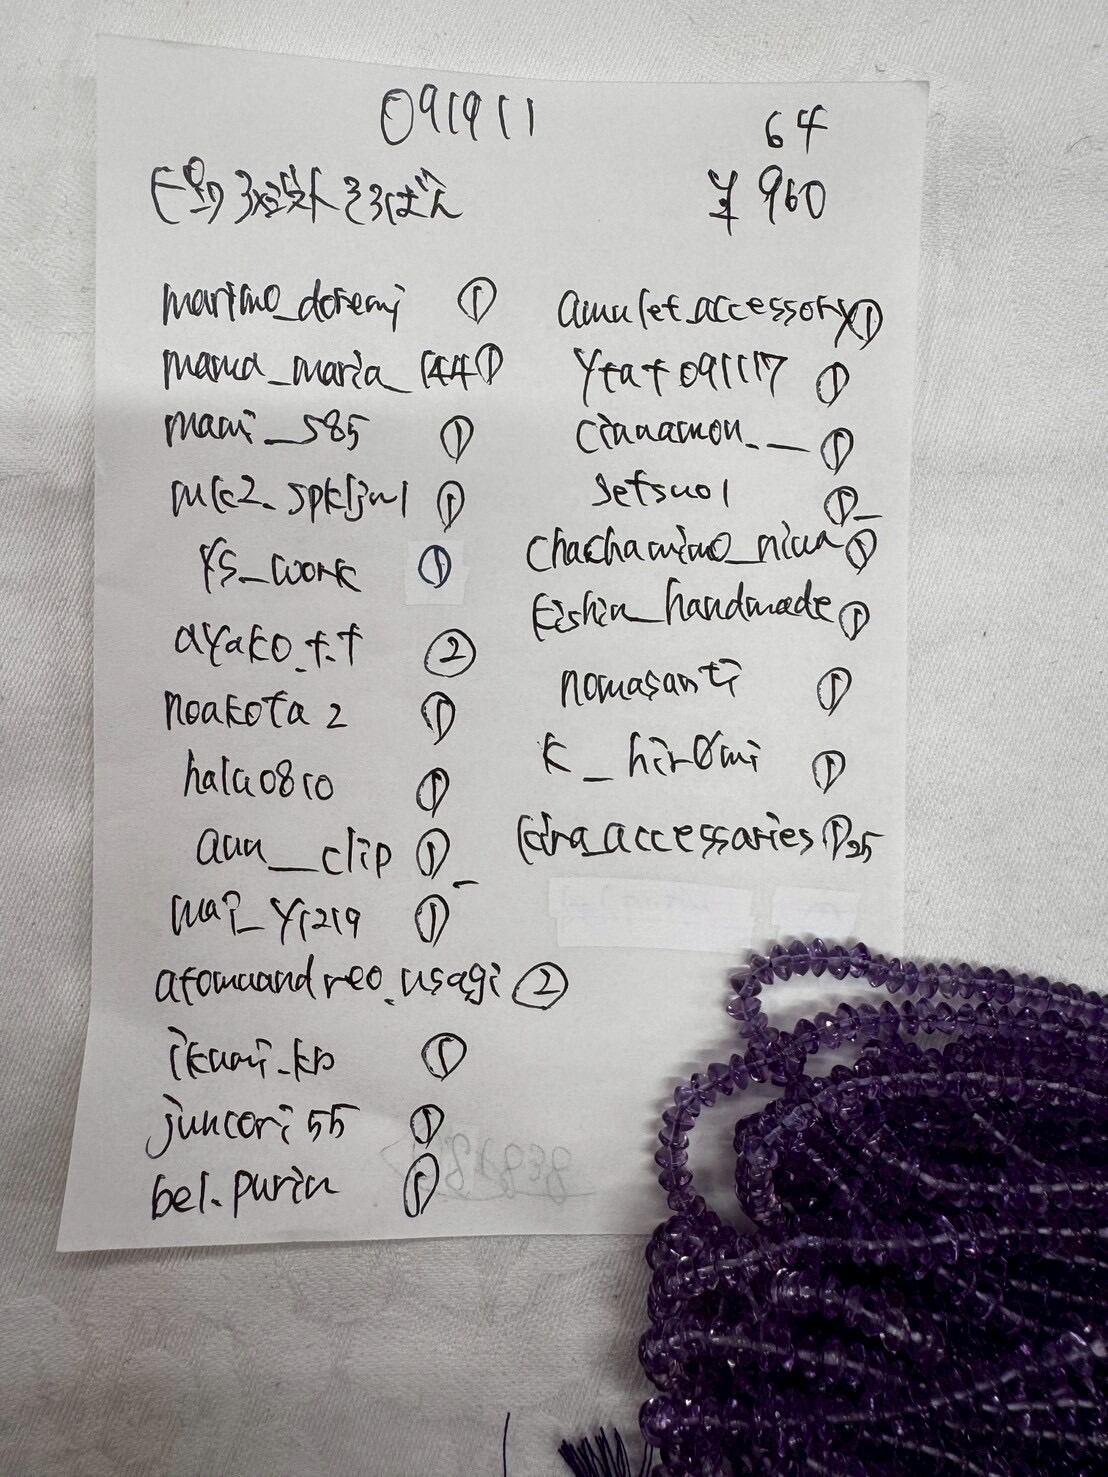 091911
64
¥960
そろばん
marimo_doremi ①
mama_maria_144 ①
mami_585 ①
①
ys_work ①
ayako.t.t ②
noakota2 ①
halu0810 ①
aun__clip ①
mai_y1219 ①
atomuandreo.usagi ②
ikumi_kb ①
juncori55 ①
bel.purin ①
amulet.accessory ①
ytat091117 ①
cinnamon.__ ①
setsuo1 ①
chachamimo_nina ①
kishin_handmade ①
nomasanti ①
k_hir0mi ①
kira_accessaries ① 25